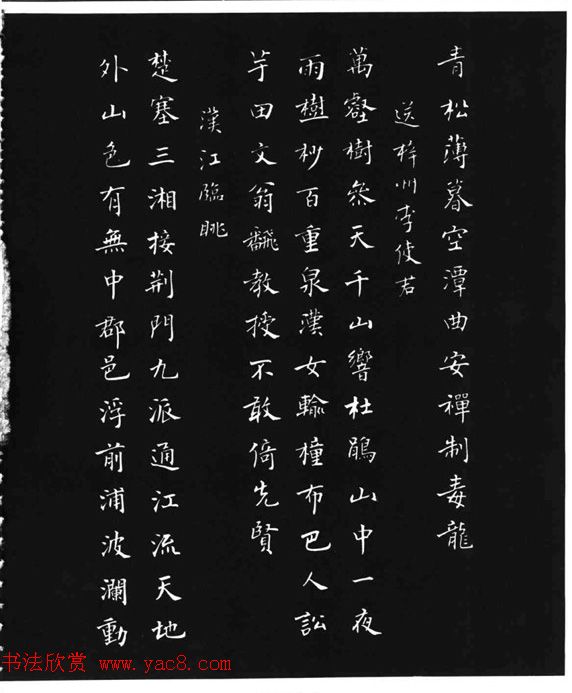 青松薄暮空潭曲安禪制毒龍
送梓州李使君
萬壑樹參天千山響杜鵑山中一夜
雨樹杪百重泉漢女輸橦布巴人訟
芋田文翁翻教授不敢倚先賢
漢江臨眺
楚塞三湘接荊門九派通江流天地
外山色有無中郡邑浮前浦波瀾動
书法欣赏 www.yac8.com